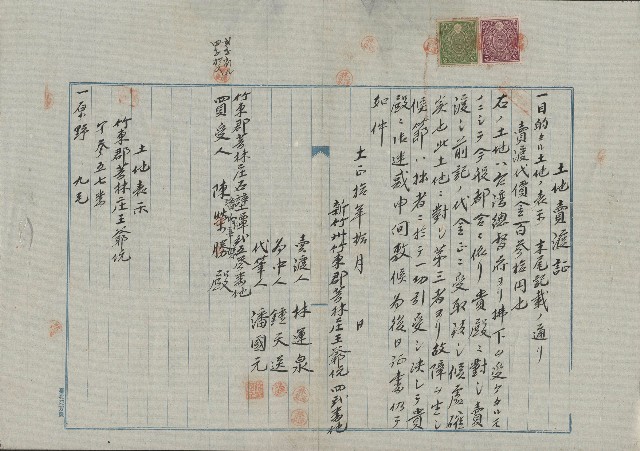 土地賣渡証
一目的タル土地ノ表示 末尾記載ノ通リ
賣渡代價金百參拾円也
右ノ土地ハ台湾總督府ヨリ拂下ヲ受ケタル
ノニシテ今般都合ニ依リ貴殿ニ對シ賣
渡シ前記ノ代金正ニ受取リ候處確
實也此土地ニ對シ第三者ヨリ故障ヲ生シ
候節ハ拙者ニ於テ一切引受ケ決シテ貴
殿ニ御迷惑申間敷候為後日証書仍テ
如件
大正拾年拾月 日
新竹州竹東郡芎林庄王爺坑四
賣渡人 林運泉
為中人 鍾天送
代筆人 潘國元
竹東郡芎林庄石壁潭
買受人 陳榮勝 殿
土地表示
竹東郡芎林庄王爺坑
參五七番
一原野